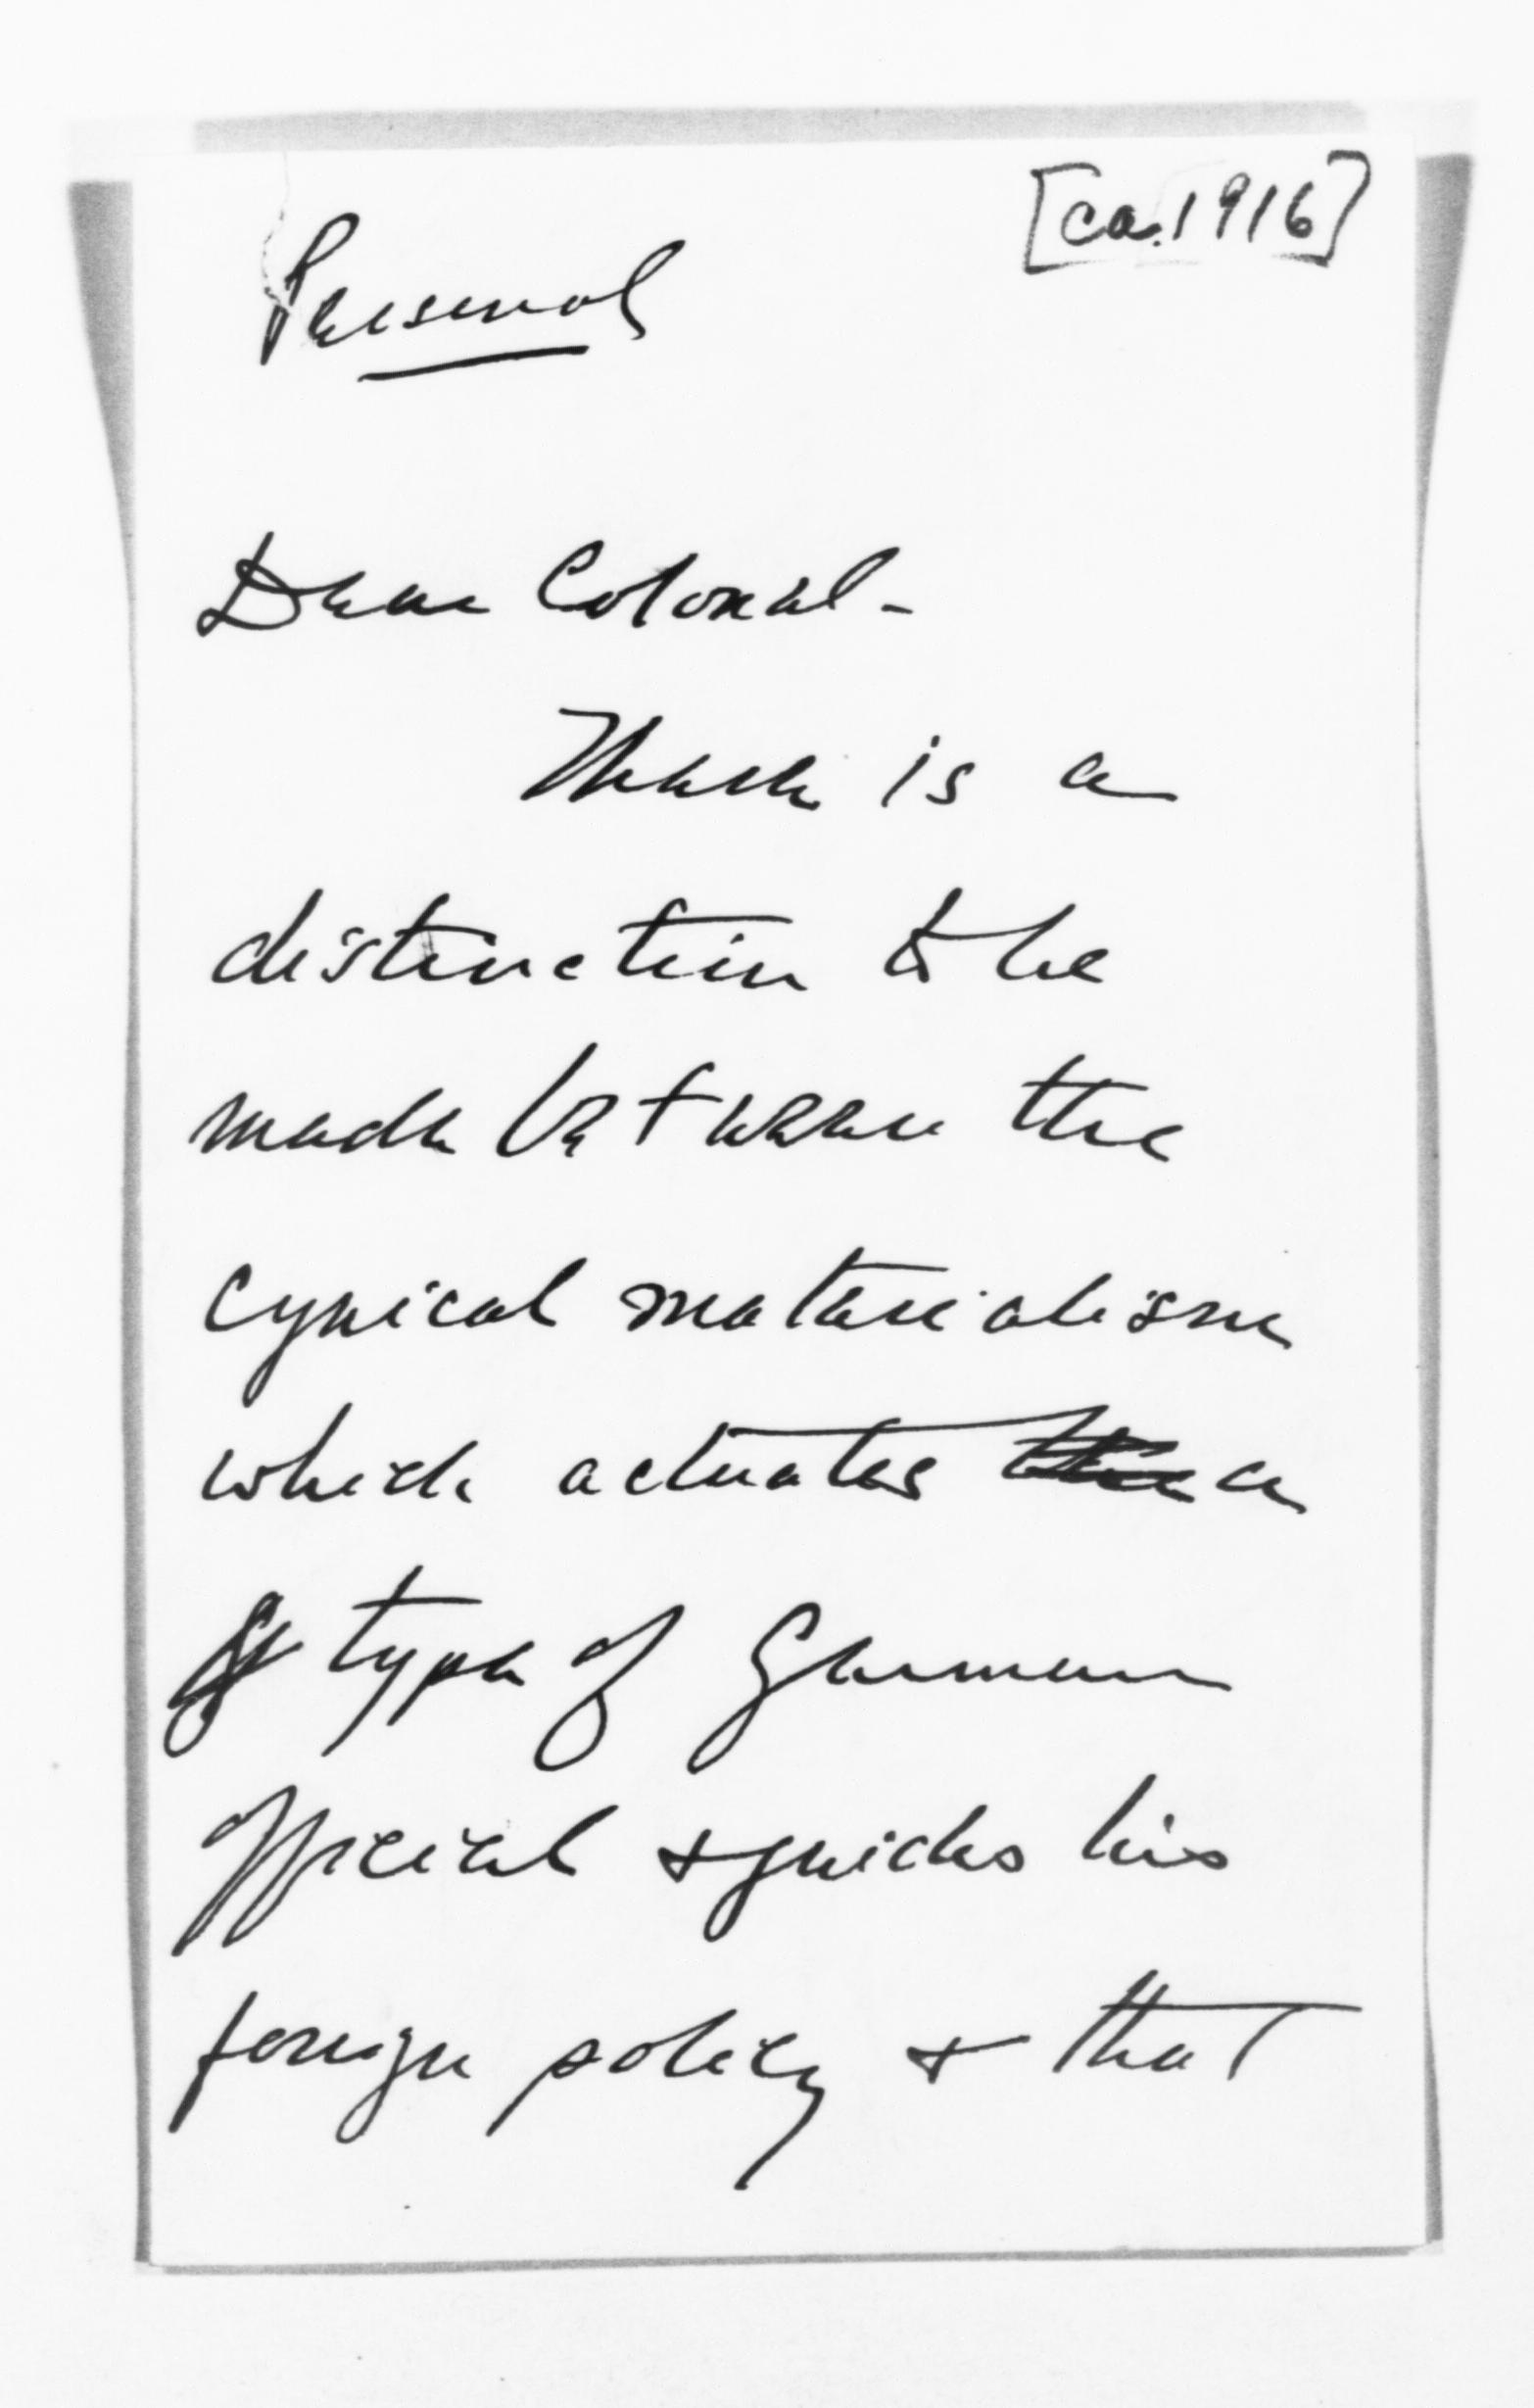 [ca. 1916]
Personal
Dear Colonel -
There is a
distinction to be
made between the
cynical materialism
which actuates the a
type of German
official & guides his
foreign policy & that